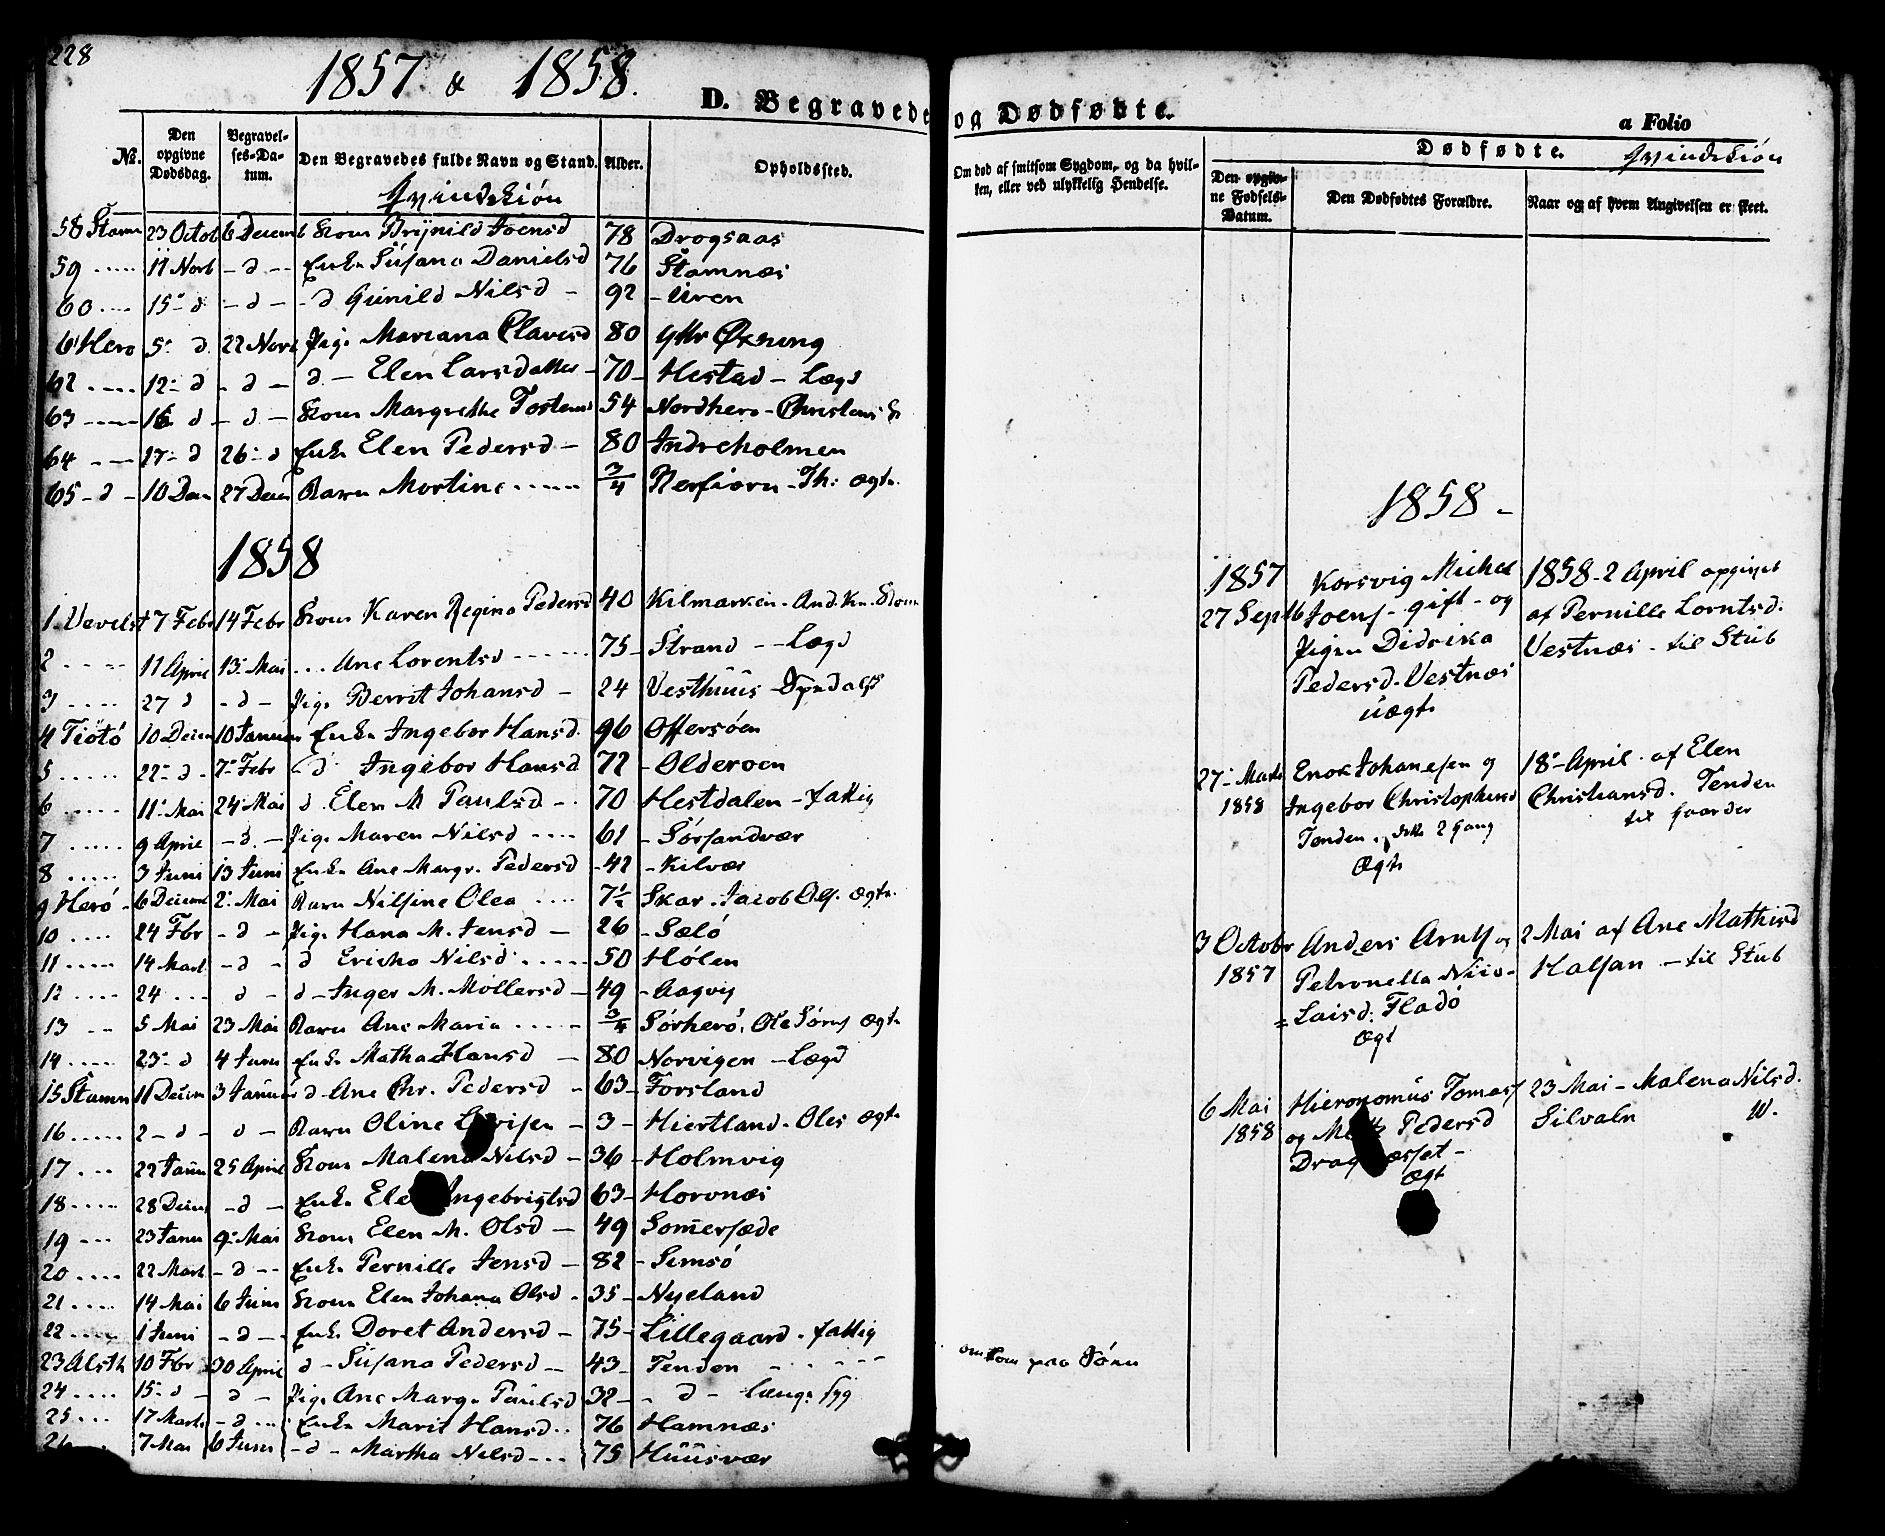 228
1857 & 1858.
D. Begravede og Dødfødte.
a Folio
No.
Den opgivne Dødsdag.
Begravelses-Datum.
Den Begravedes fulde Navn og Stand.
Qvindekiøn
Alder.
Opholdssted.
Om død af smitsom Sygdom, og da hvilken, eller ved ulykkelig Hendelse.
Dødfødte. Qvindekiøn
Den opgivne Fødsels-Datum.
Den Dødfødtes Forældre.
Naar og af hvem Angivelsen er skeet.
58 Stamn 23 Octob 6 Decemb Kone Brynild Joensd 78 Drogsaas
59 ..... 11 Novb - d - Enke Susana Danielsd 76 Stamnæs
60 .... 15- d - d - - d Gunild Nilsd - 92 - Uren
61 Herø 5- d 22 Nov Pige Mariana Olavesd 80 Yttr Øxning
62 ..... 12- d - d - d - Elen Larsdatter - 70 - Hestad - Lægd
63 ..... 16 d - d - Kone Margrethe Tostens 54 Nordherø - Christens K
64 .... 17- d 26- d Enke Elen Pedersd - 80 Indreholmen
65 - d - 10 Decm 27 Decm Barn Mortine ...... 3/4 Rørfiorn - Th: Ægte.
1858
1 Vevelst 7 Febr 14 Febr Kone Karen Regina Pedersd 40 Kilmarken - And. Kn. Kone
2 ..... 11 April 13- Mai ... Ane Lorentsd ...... 75 - Strand - - Lægd
3 .... 27 d - d - Pige Berrit Johansd - 24 Vesthuus
4 Tiøtø 10 Decem 10 Januar Enke Ingebor Hansd. 96 Offersøen
5 ..... 22- d - 7- Febr - d Ingebor Hansd 72 - Olderøen
6 ..... 11- Mai 24- Mai d - Elen M Paulsd - . 70 Hestdalen - fattig
7 ..... 9 April - d - Pige Maren Nilsd .... 61 - Sørsandvær
8 ..... 3 Juni 13 Juni Enke Ane Margr. Pedersd - 42 - Kilvær
9 Herø - 6 Decemb 2- Mai Barn Nilsine Olea .... 7½ Skar. Jacob Ols. Ægte.
10 .... 24 Fbr - d - Pige Hana M. Jensd - 26 - Sælø
11 .... 14 Mart - d - d Ericka Nilsd ..... 50 Hølen
12 .... 24 ... d - d - Inger M. Møllersd - 49 - Aagvig
13 -- 5 Mai 23 Mai Barn Ane Maria ..... 3/4 Sørherø, Ole Sørens Ægte
14 .... 23- d 4 Juni Enke Matha Hansd - 80 Norvigen - Lægd
15 Stamn 11 Decem 3 Januar d - Ane Chr. Pedersd - 63 - Forsland
16 ..... 2 - d - d - Barn Oline Lovisen - 3 - Hiertland - Oles Ægte
17 ... 22 Janu 25 April Kone Malena Nilsd - 36 - Holmvig
18 ..... 28 Decm - d - Enke Elen Ingebrigtsd 63 - Horvnæs
19 ... 23 Janu 9- Mai Kone Elen M. Olsd - 49 Somersæde
20 .... 22 Mart - d - - Enke Pernille Jensd - 82 - Simsø
21 .... 14 Mai 6 Juni Kone Elen Johana Olsd - 35 - Nyeland
22 ..... 1 Juni - d - - Enke Doret Andersd - 75 - Lillegaard - fattig
23 Alsth 10 Fbr 30 April d - Susana Pedersd - 43 - Tenden - omkom paa Søen
24 .... 15- d - d - Pige Ane Margr Paulsd 32 - - d - længe syg
25 ... 17 Marts - d ... Enke Marit Hansd .. 76 Hamnæs
26 ... 7 Mai 6 Juni - d - Martha Nilsd ... 75 Huusvær
1858 -
1857
27 Sept
Korsvig Michel
Joens - gift - og
Pigen Didrika
Pedersd. Vestnæs
uægte
1858 - 2 April opgivet
af Pernille Lorntsd.
Vestnæs - til Stub
27- Marts
1858
Enok Johanesen og
Ingebor Christophersd
Tenden. dette 2 Gang
Ægte
18- April - af Elen
Christiansd. Tenden
til Gaarder
3 Octobr
1857
Anders Arnts og
Petronella Nico-
= Laisd: Fladø
Ægt
2 Mai af Ane Mathisd
Halsan - til Stub
6 Mai
1858
Hieronomus Tomas
og Pedersd
Ægt
23 Mai - Malena Nilsd.